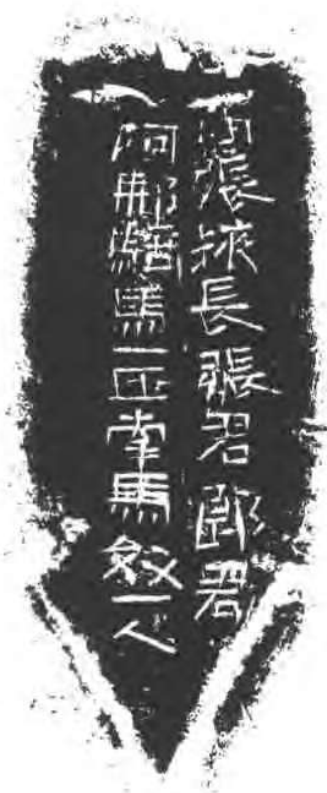 守張掖長張君郎君
阿那騧馬一匹牽馬奴一人